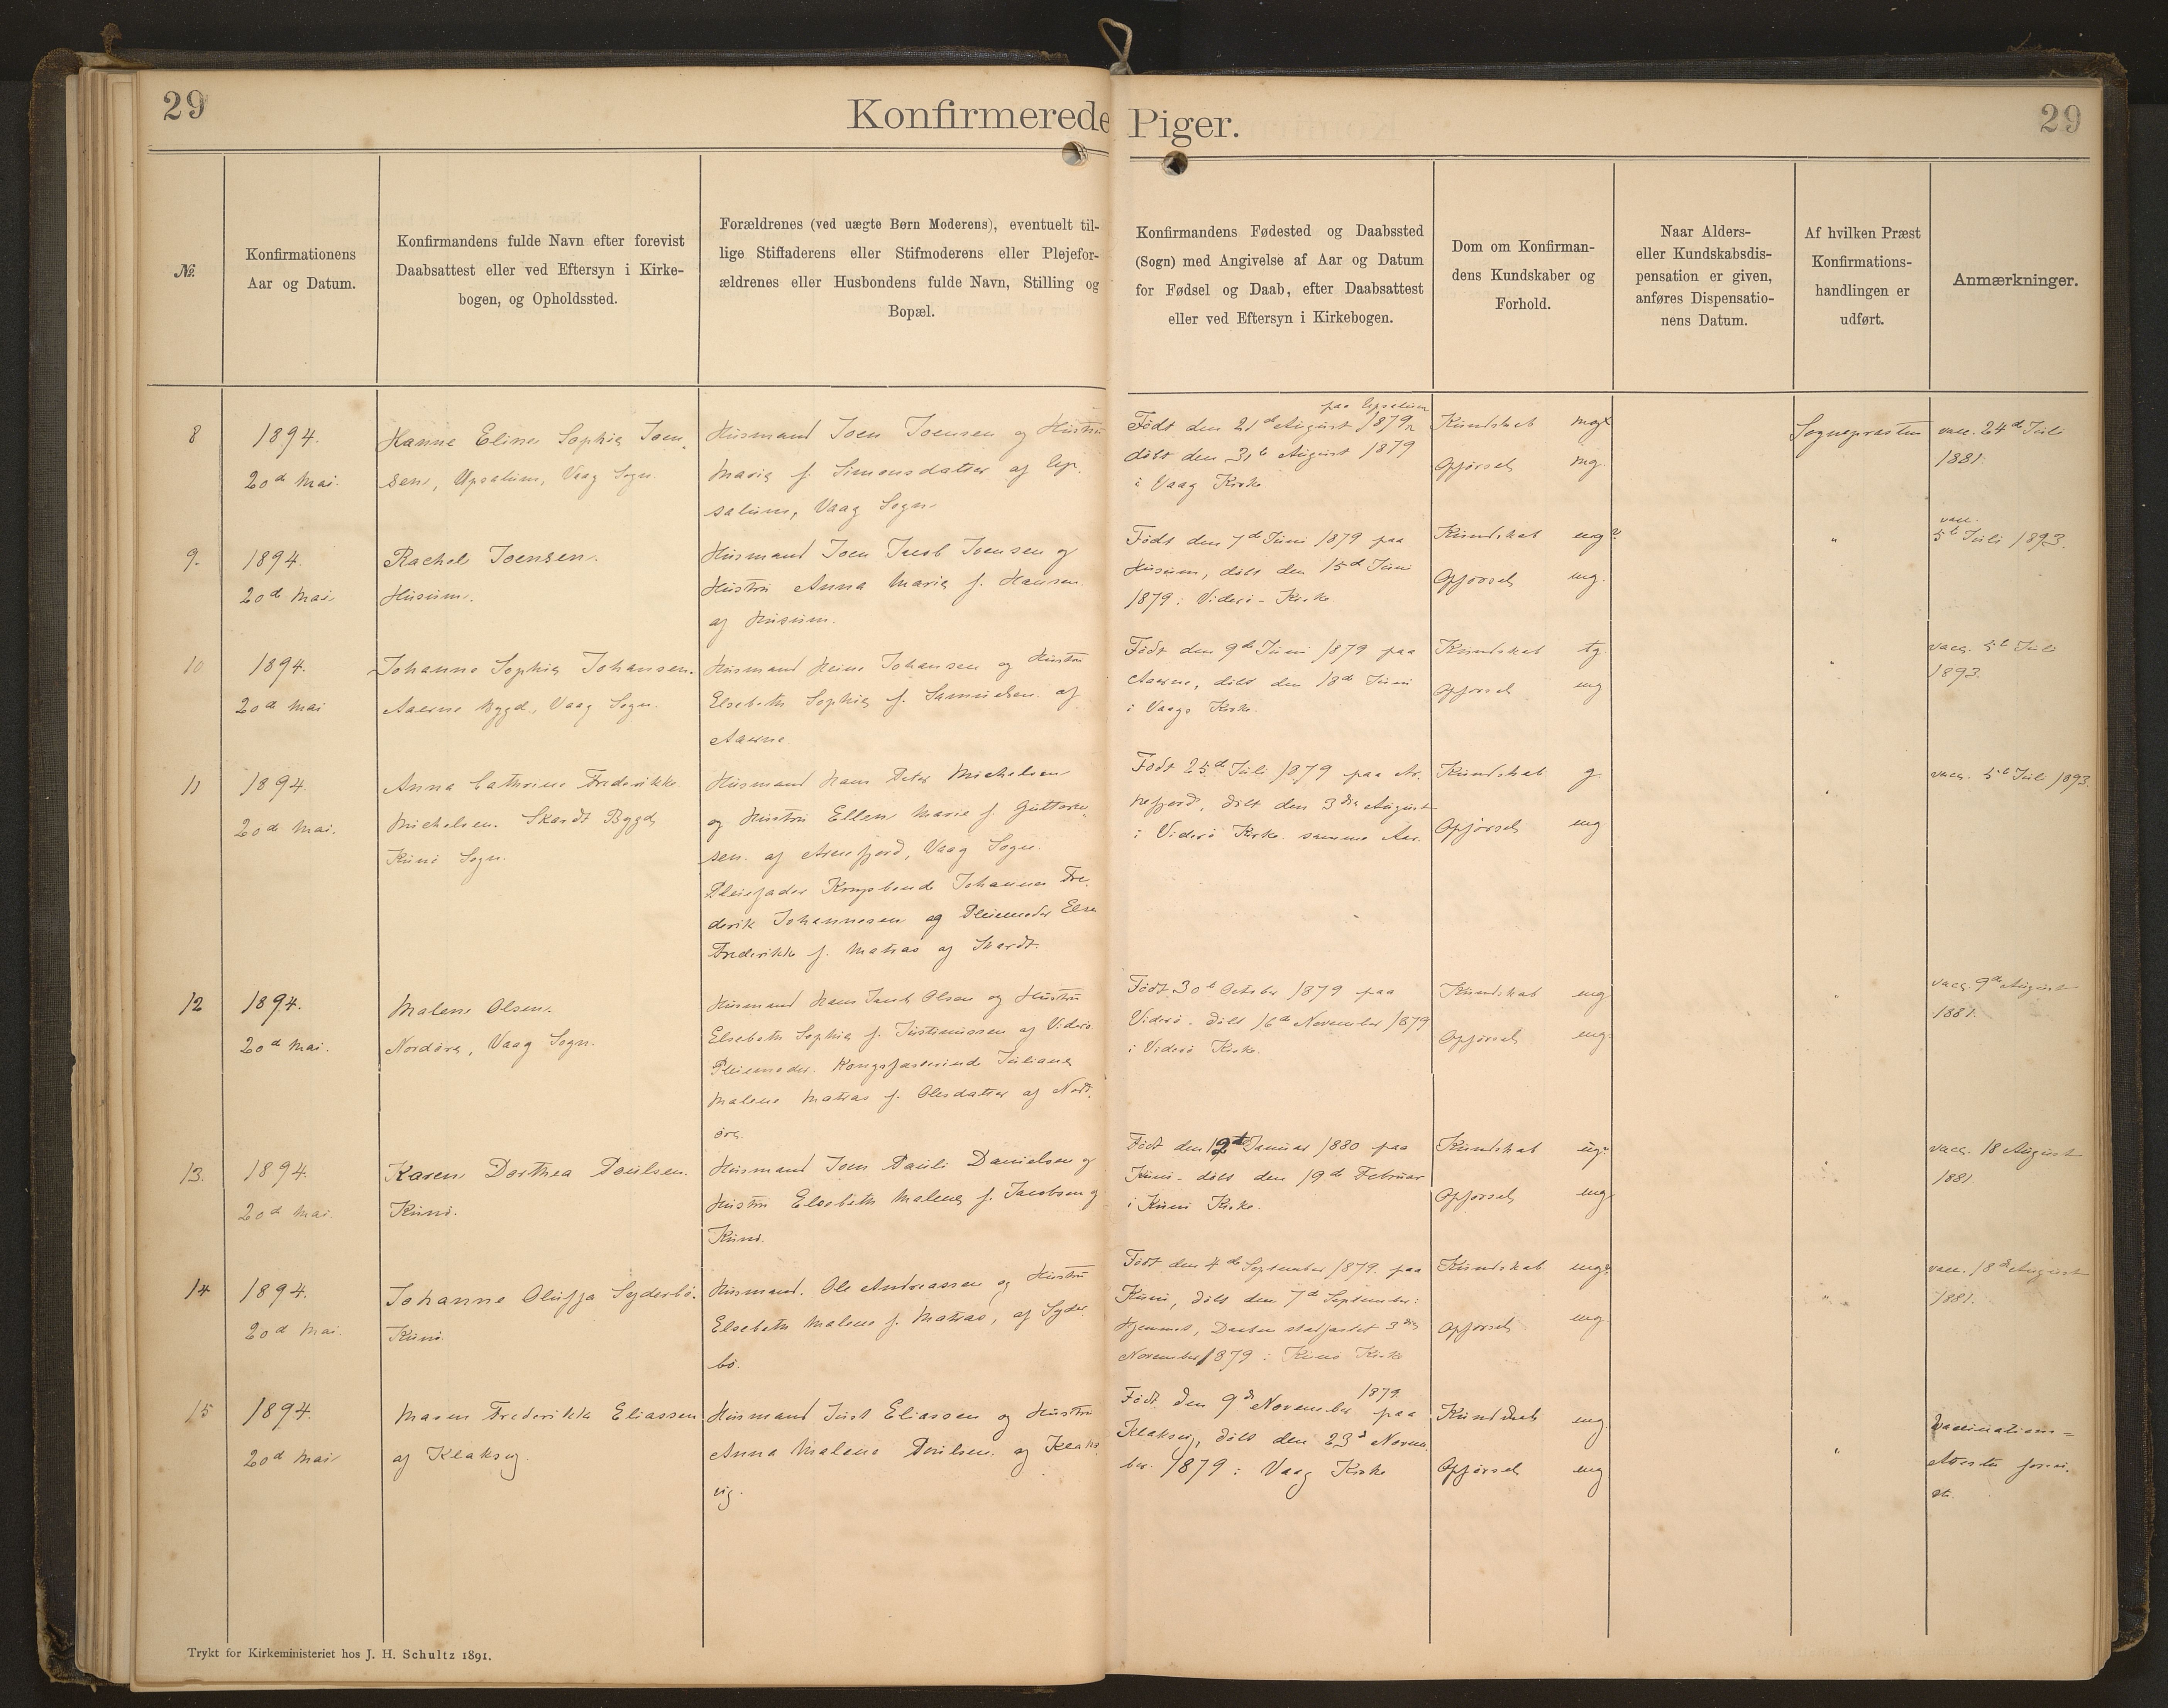 29
Konfirmerede Piger.
29
№.
Konfirmationens
Aar og Datum.
Konfirmandens fulde Navn efter forevist
Daabsattest eller ved Eftersyn i Kirke-
bogen, og Opholdssted.
Forældrenes (ved uægte Børn Moderens), eventuelt til-
lige Stiffaderens eller Stifmoderens eller Plejefor-
ældrenes eller Husbondens fulde Navn, Stilling og
Bopæl.
Konfirmandens Fødested og Daabssted
(Sogn) med Angivelse af Aar og Datum
for Fødsel og Daab, efter Daabsattest
eller ved Eftersyn i Kirkebogen.
Dom om Konfirman-
dens Kundskaber og
Forhold.
Naar Alders-
eller Kundskabsdis-
pensation er given,
anføres Dispensatio-
nens Datum.
Af hvilken Præst
Konfirmations-
handlingen er
udført.
Anmærkninger.
8
1894.
20de Mai.
Hanne Eline Sophia Joen-
sen, Upsalum, Vaag Sogn.
Husmand Joen Joensen og Hustru
Maria f. Simonsdatter af Up-
salum, Vaag Sogn.
paa Upsalum
Født den 21de August 1879
døbt den 31te August 1879
i Vaag Kirke
Kundskab mg
Opførsel mg.
Sognepræsten
vacc. 24de Juli
1881.
9.
1894.
20de Mai
Rachel Joensen.
Husum.
Husmand Joen Jacob Joensen og
Hustru Anna Maria f. Hansen
af Husum.
Født den 7de Juni 1879 paa
Husum, døbt den 15de Juni
1879 i Viderø-Kirke
Kundskab ug?
Opførsel ug.
"
vacc.
5te Juli 1893.
10
1894.
20de Mai
Johanne Sophia Johansen.
Aaerne Bygd, Vaag Sogn.
Husmand Heine Johansen og Hustru
Elsebeth Sophia f. Samuelsen af
Aaerne.
Født den 9de Juni 1879 paa
Aaerne, døbt den 18de Juni
i Vaags Kirke.
Kundskab tg.
Opførsel ug
"
vacc. 5te Juli
1893.
11
1894.
20de Mai.
Anna Cathrine Frederikke
Michelsen. Skardt Bygd,
Kunø Sogn.
Husmand Hans Peter Michelsen
og Hustru Ellen Marie f. Guttorm-
sen. af Arnefjord, Vaag Sogn.
Pleiefader Johannes Fre-
derik Johannesen og Pleiemoder Else
Frederikke f. Matras af Skardt.
Født 25de Juli 1879 paa Ar-
nefjord, døbt den 3die August
i Viderø Kirke samme Aar.
Kundskab g.
Opførsel ug
"
vacc. 5te Juli 1893.
12
1894.
20de Mai.
Malene Olsen.
Nordøre, Vaag Sogn.
Husmand Hans Jacob Olsen og Hustru
Elsebeth Sophia f. Justinussen af Viderø.
Pleiemoder. Juliane
Malene Matras f. Olesdatter af Nord-
øre.
Født 30te October 1879 paa
Viderø. døbt 16de November 1879
i Viderø Kirke.
Kundskab ug
Opførsel ug.
"
vacc. 9de August
1881.
13.
1894.
20de Mai.
Karen Dorthea Poulsen.
Kunø.
Husmand Joen Pauli Danielsen og
Hustru Elsebeth Malene f. Jacobsen af
Kunø.
Født den 12te Januar 1880 paa
Kunø. døbt den 19de Februar
i Kunø Kirke.
Kundskab ug?
Opførsel ug
"
vacc. 18 August
1881
14
1894.
20de Mai.
Johanne Olufja Syderbø.
Kunø.
Husmand. Ole Andreassen og Hustru
Elsebeth Malene f. Matras, af Syder-
bø.
Født den 4de September 1879. paa
Kunø, døbt den 7de September i
Hjemmet, Daaben stadfæstet 3die
November 1879 i Kunø Kirke
Kundskab ug?
Opførsel ug
"
vacc. 18de August
1881.
15
1894.
20de Mai
Maren Frederikke Eliassen
af Klaksvig.
Husmand Just Eliassen og Hustru
Anna Malene Poulsen. af Klaks-
vig.
1879.
Født den 9de November paa
Klaksvig, døbt den 23de Novem-
ber 1879 i Vaag Kirke
Kundskab ug.
Opførsel ug
"
Vaccinations-
Attesten forevi-
st.
Trykt for Kirkeministeriet hos J. H. Schultz 1891.